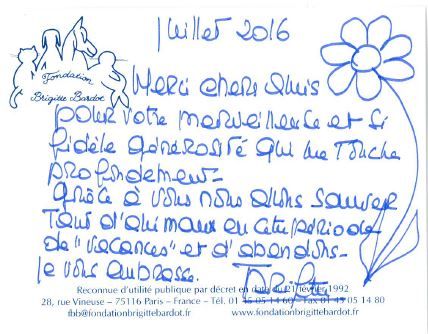 Juillet 2016
Fondation
Brigitte Bardot
Merci chers Amis
pour votre merveilleuse et si
fidèle générosité qui me touche
profondément-
grâce à vous nous allons sauver
tant d'animaux en cette période
de "vacances" et d'abandons-
je vous embrasse. Brigitte
Reconnue d'utilité publique par décret en date du 21 février 1992
28, rue Vineuse – 75116 Paris – France – Tél. 01 45 05 14 60 – Fax 01 45 05 14 80
fbb@fondationbrigittebardot.fr www.fondationbrigittebardot.fr